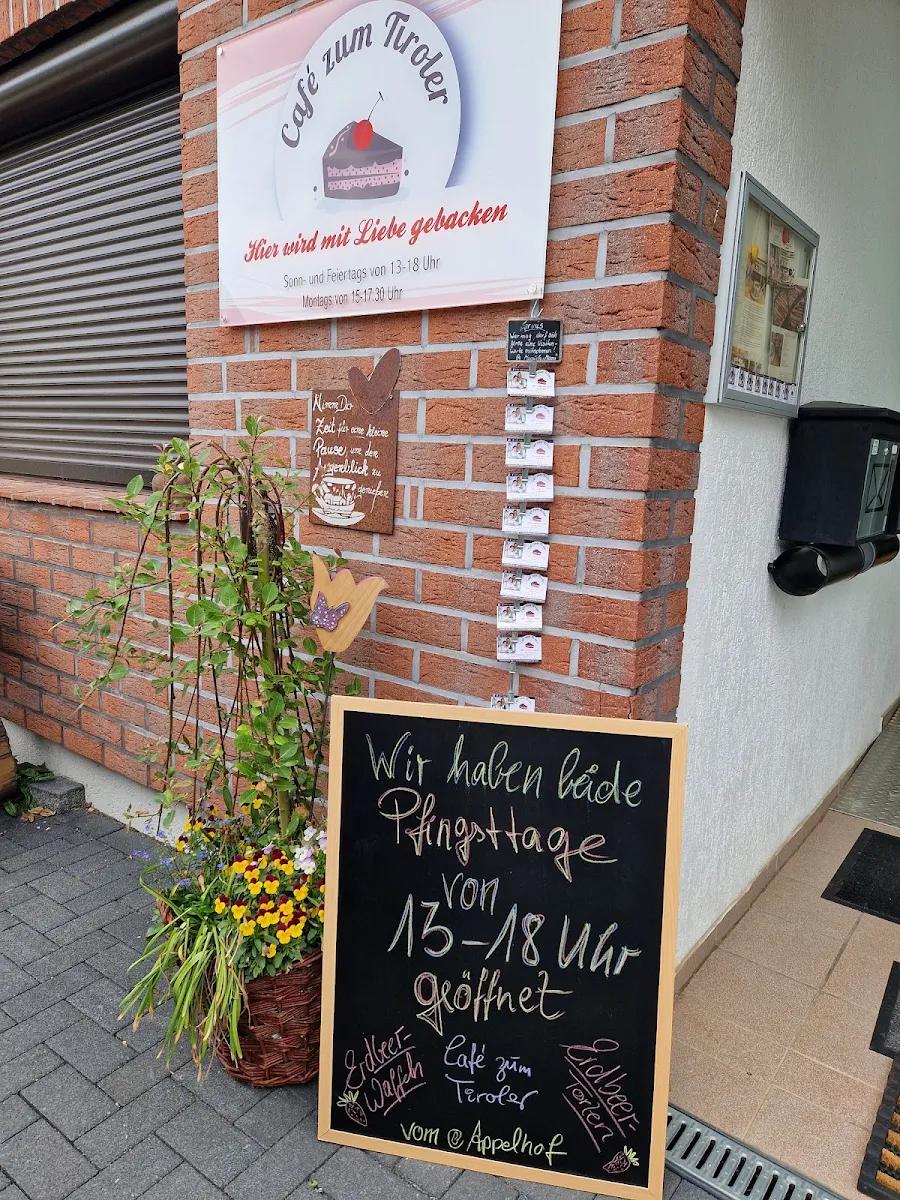 Café zum Tiroler
Hier wird mit Liebe gebacken
Sonn- und Feiertags von 13-18 Uhr
Montags von 15-17.30 Uhr
Servus
Wer mag, darf sich
gerne eine Visiten-
karte mitnehmen!
Nimm Dir
Zeit für eine kleine
Pause, um den
Augenblick zu
genießen
Wir haben beide
Pfingsttage
von
13-18 Uhr
geöffnet
Erdbeer-
Waffeln
Café zum
Tiroler
Erdbeer-
Torten
vom @ Appelhof